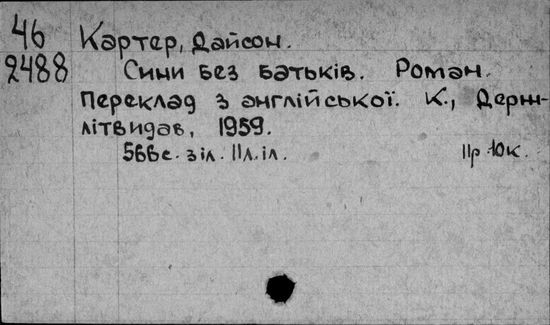 46
2488
Картер, Дайсон.
Сини без батьків. Роман.
Переклад з англійської. К., Держ-
літвидав, 1959.
566с. з іл. 11л.іл. 11р 10к.